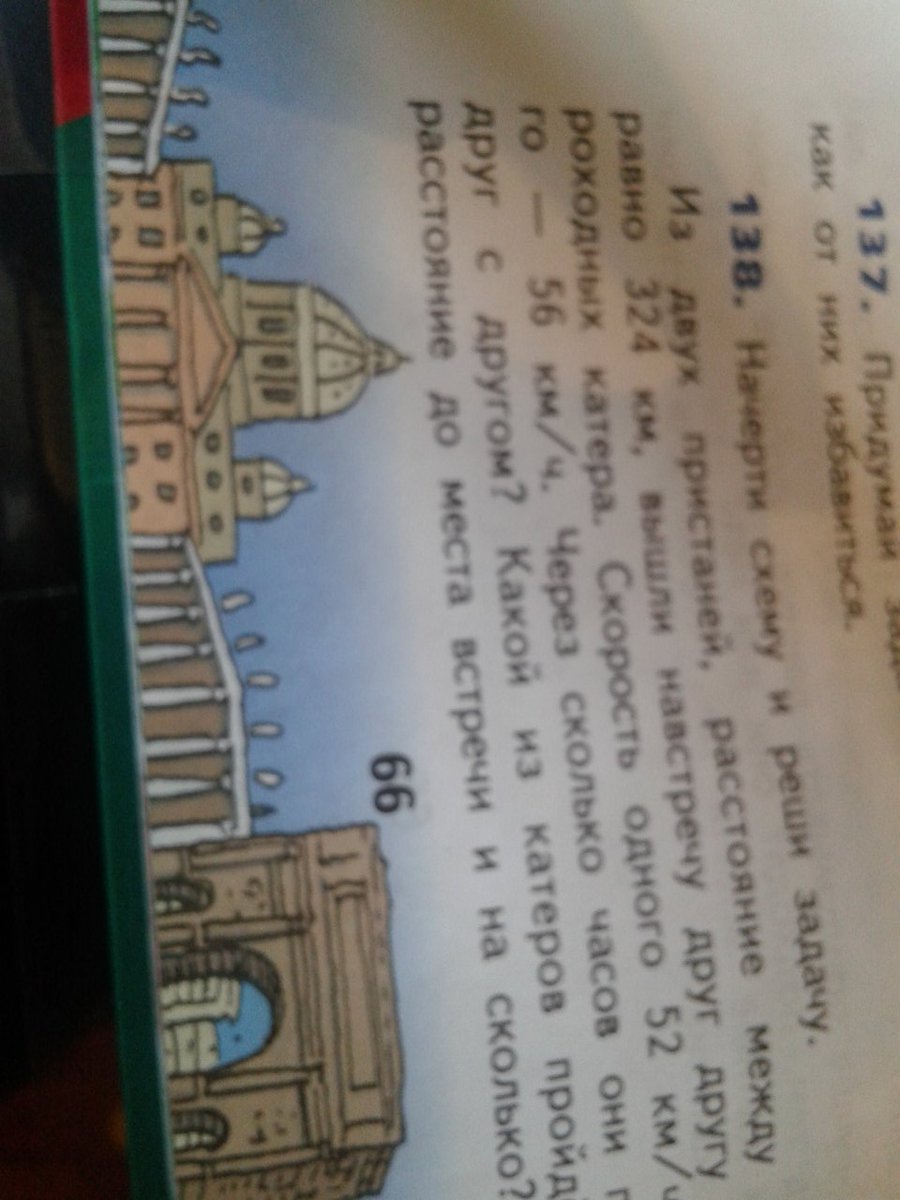 137. Придумай
как от них избавиться.
138. Начерти схему и реши задачу.
Из двух пристаней, расстояние между
равно 324 км, вышли навстречу друг другу
роходных катера. Скорость одного 52 км/ч
го — 56 км/ч. Через сколько часов они
друг с другом? Какой из катеров пройд
расстояние до места встречи и на сколько?
66